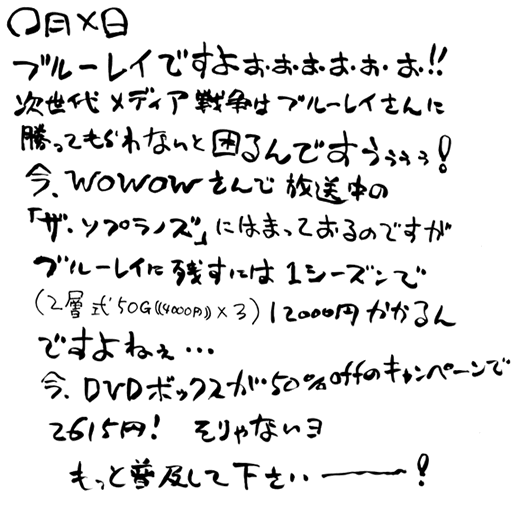 〇月×日
ブルーレイですよぉ・お・お・お・お・お・!!
次世代メディア戦争はブルーレイさんに
勝ってもらわないと困るんですぅぅぅぅ!
今、WOWOWさんで放送中の
「ザ・ソプラノズ」にはまっておるのですが
ブルーレイに残すには1シーズンで
(2層式50G((4000円))×3)12000円かかるん
ですよねぇ…
今、DVDボックスが50%offのキャンペーンで
2615円! そりゃないヨ
もっと普及して下さい――!